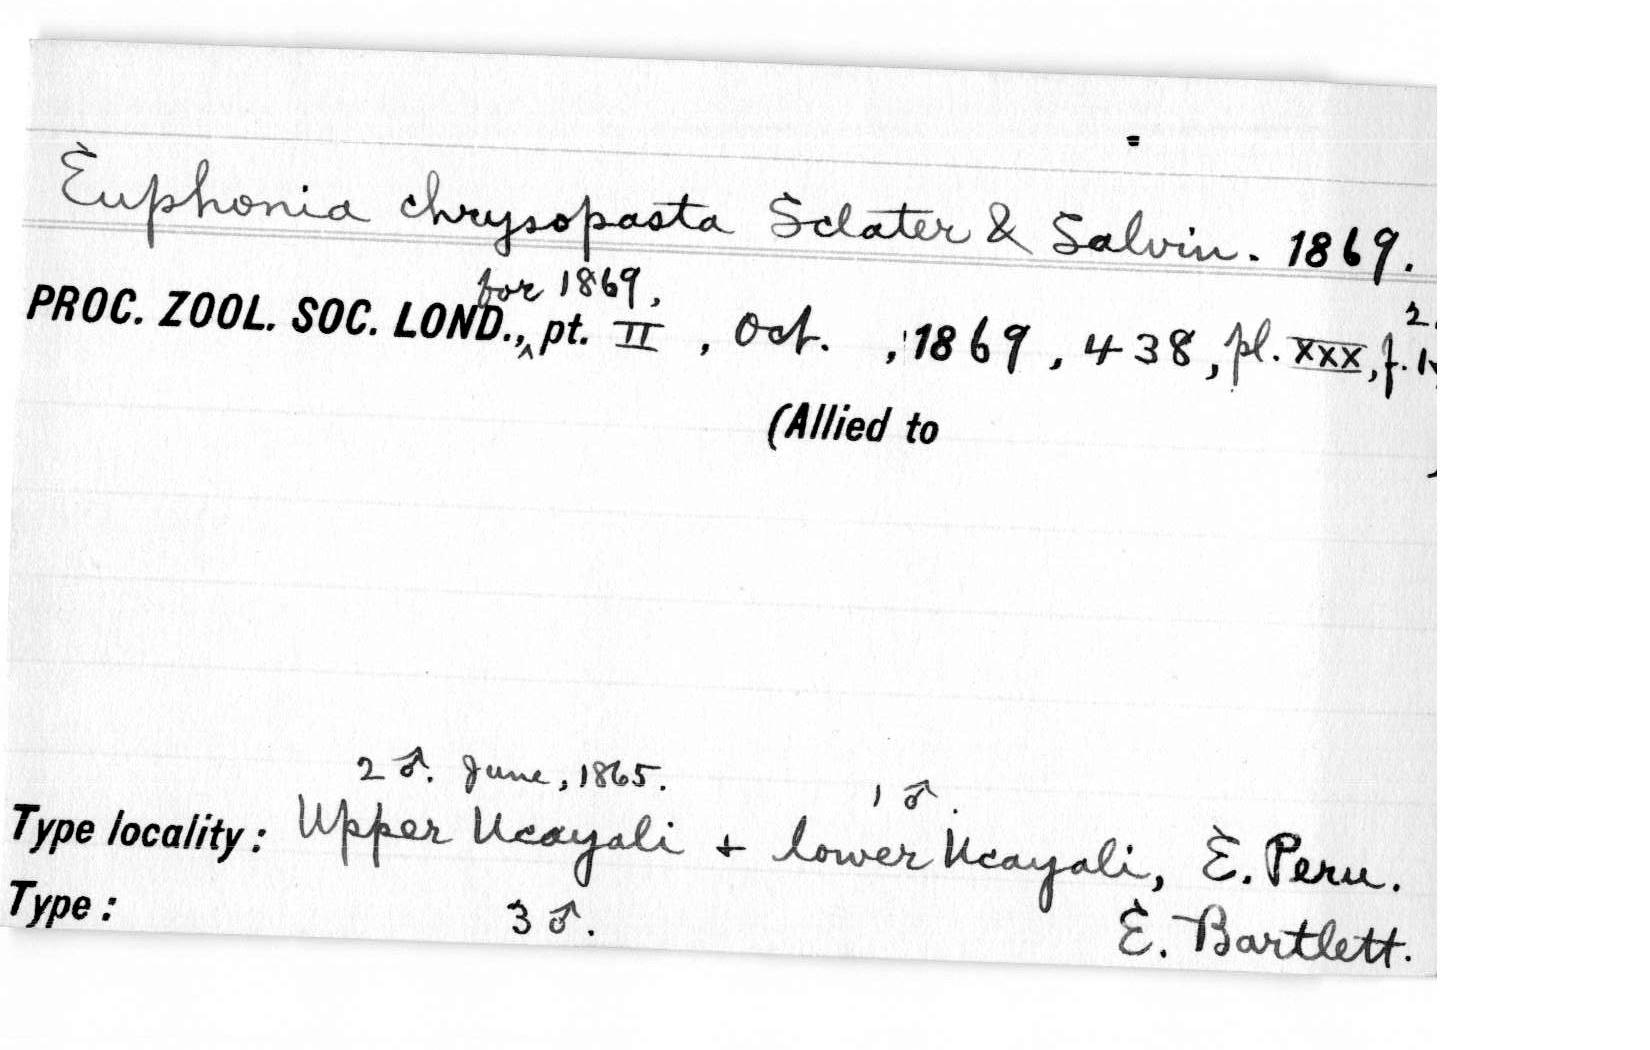 Euphonia chrysopasta Sclater & Salvin. 1869.
for 1869,
PROC. ZOOL. SOC. LOND., pt. II, Oct., 1869, 438, pl. XXX, f. 1,
2.
(Allied to
2 ♂. June, 1865. 1 ♂.
Type locality: Upper Ucayali + lower Ucayali, E. Peru.
Type: 3 ♂. E. Bartlett.